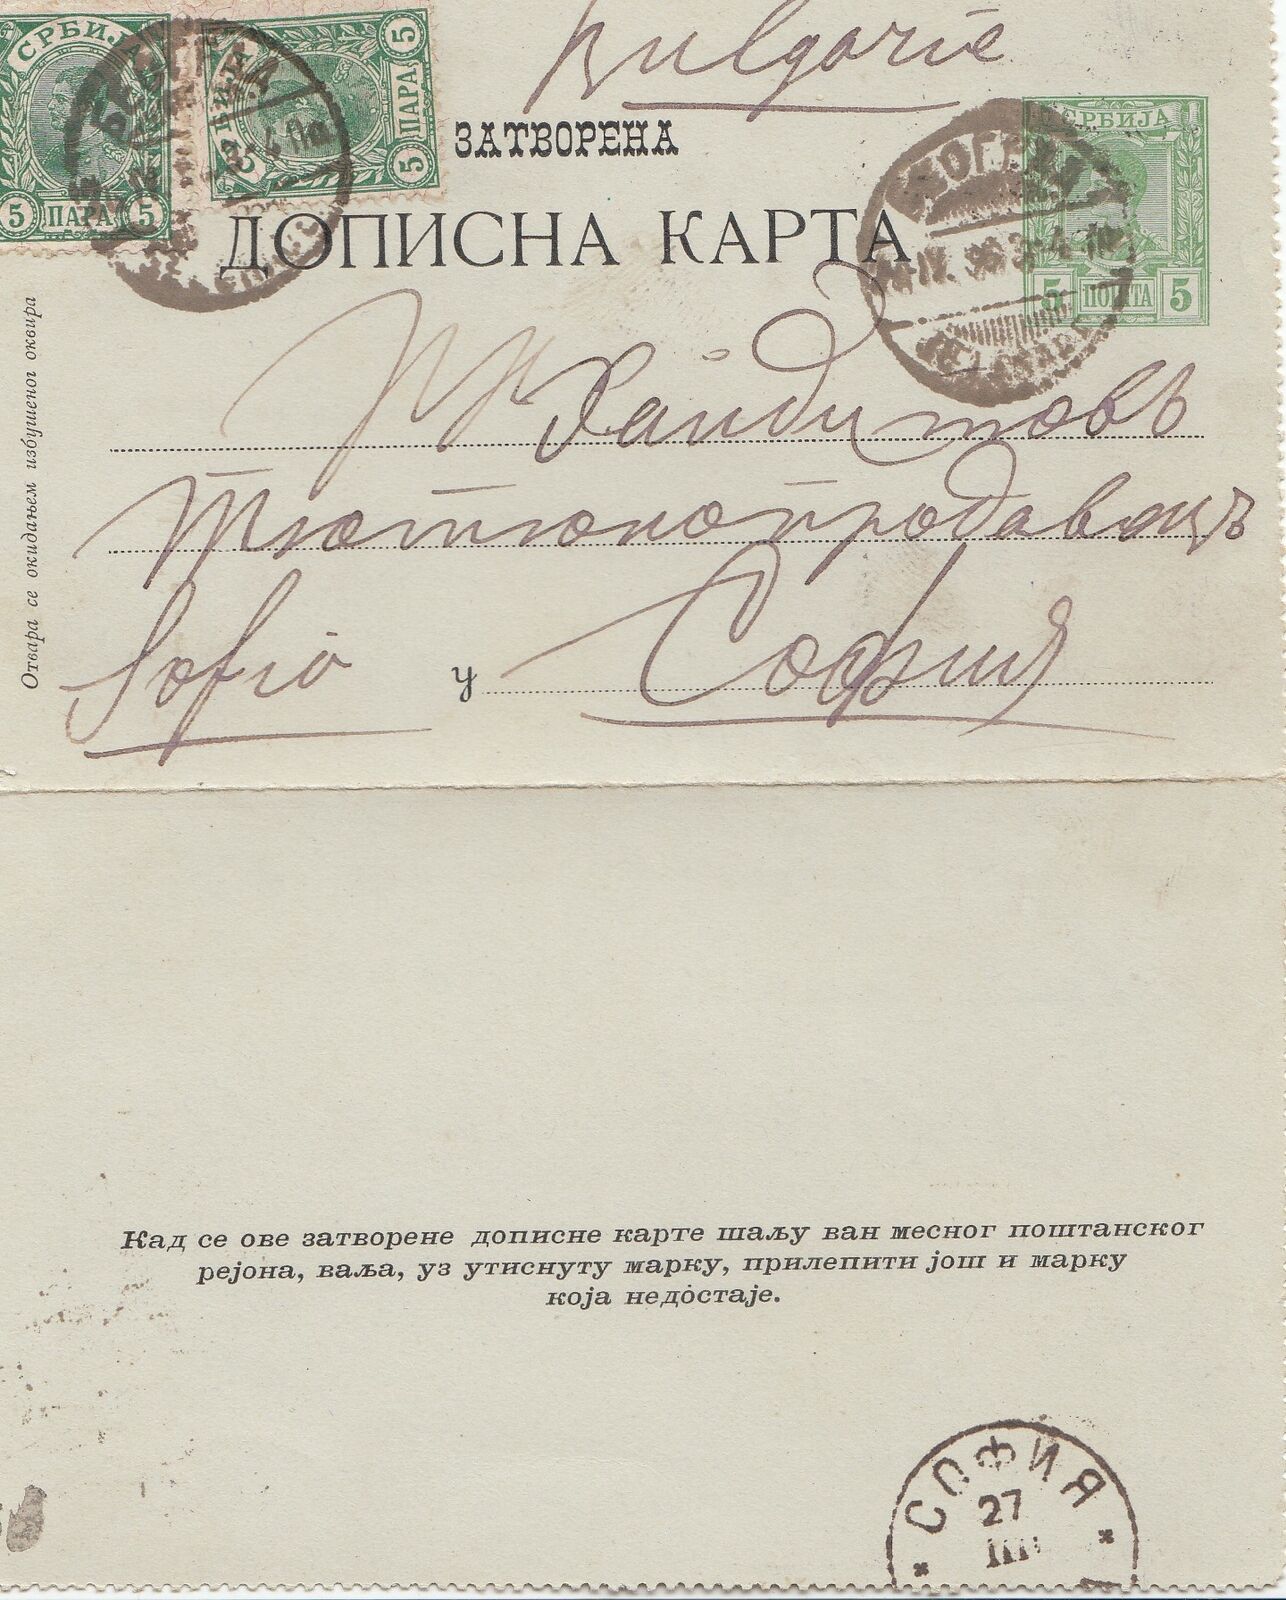 Bulgarie
СРБИЈА
5 ПАРА 5
СРБИЈА
5 ПАРА 5
ЗАТВОРЕНА
ДОПИСНА КАРТА
СРБИЈА
5 ПОШТА 5
Отвара се окидањем избушеног оквира
Тютюнопродавецъ
Sofia у София
Кад се ове затворене дописне карте шаљу ван месног поштанског
рејона, ваља, уз утиснуту марку, прилепити још и марку
која недостаје.
СОФИЯ
27
III